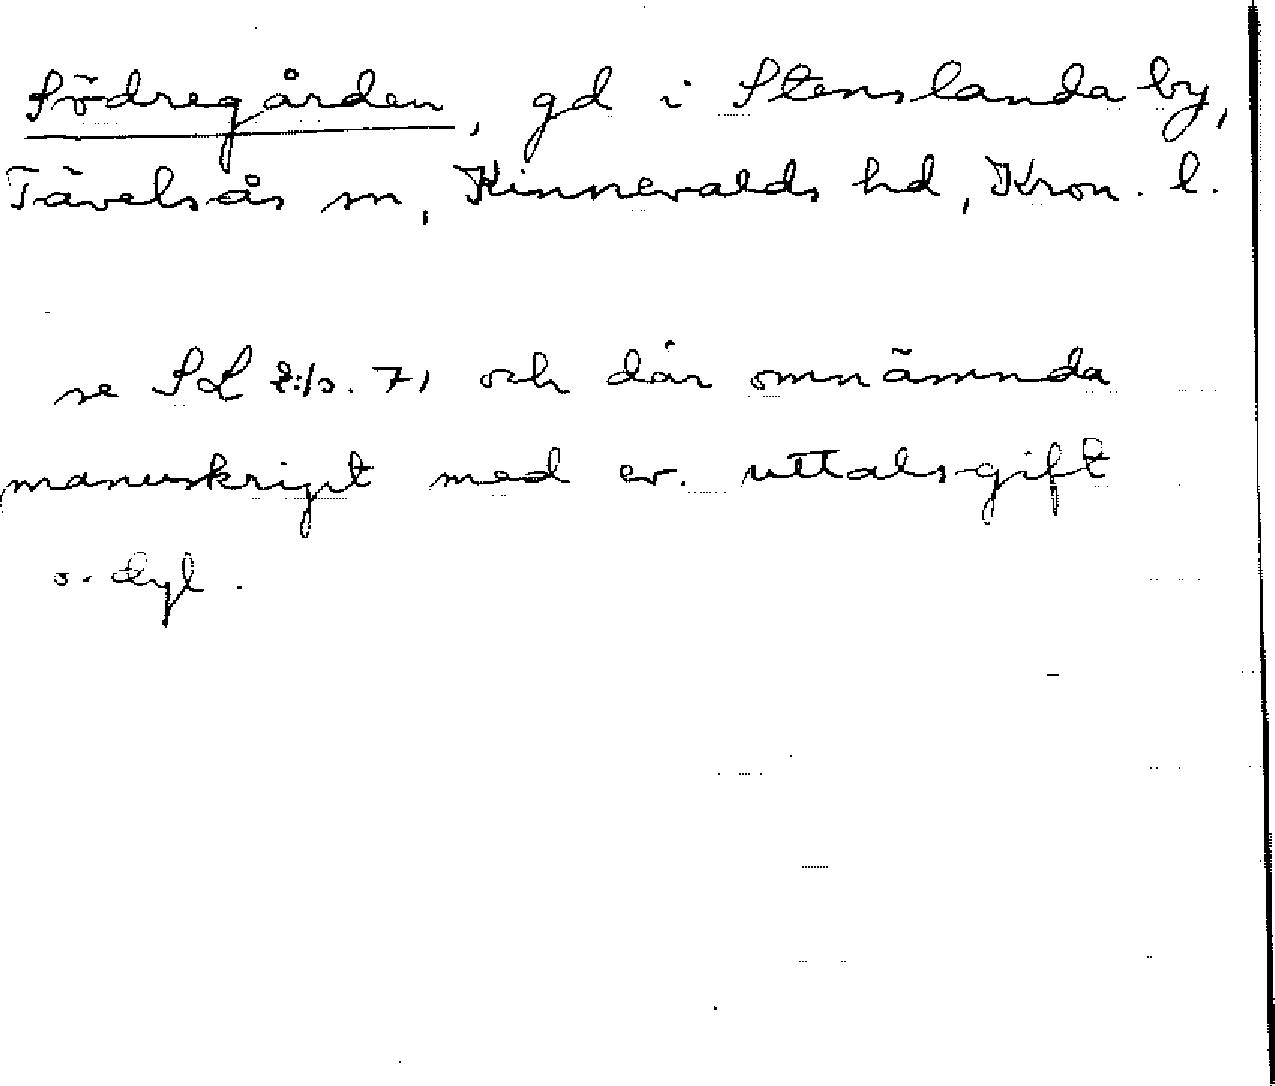 Södregården, gd i Stenslanda by,
Tävelsås sn, Kinnevalds hd, Kron. l.
se SL s. 71 och där omnämnda
manuskript med ev. uttalsgift
o. dyl.